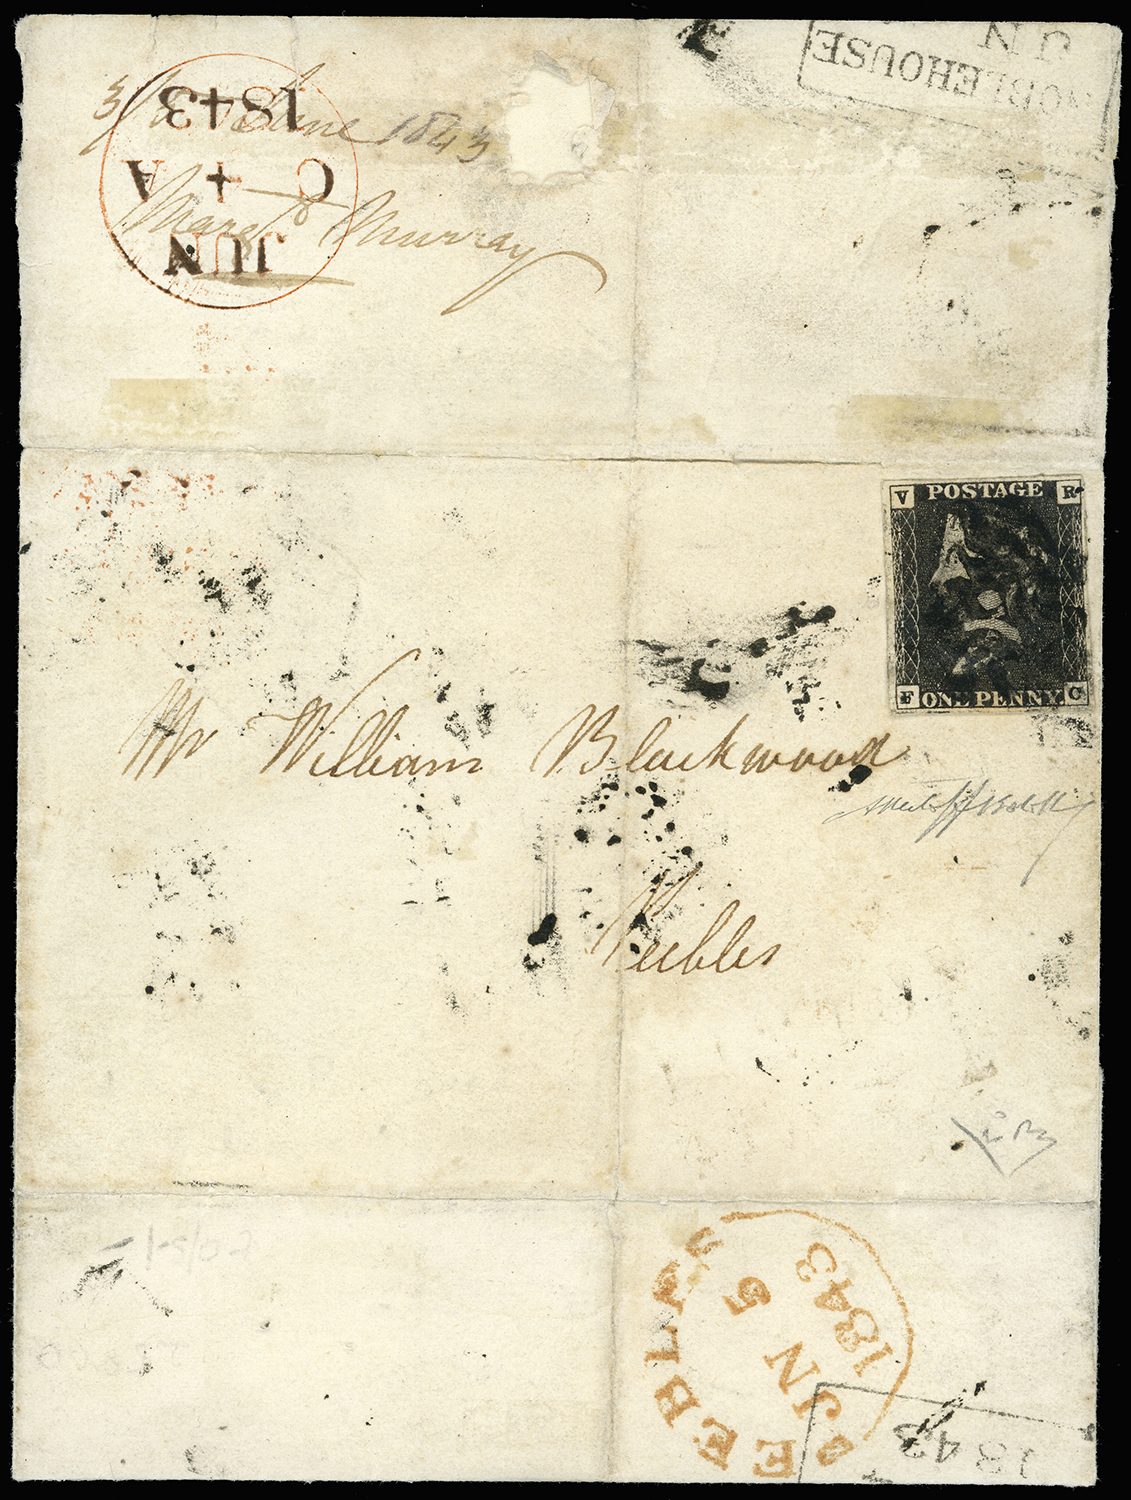 NOBLEHOUSE
JN
1843
C + A
JUN
June 1843
Margt Murray
V POSTAGE R
F ONE PENNY. C
Mr William Blackwood
Peebles
PEEBLES
JN 5
1843
1843